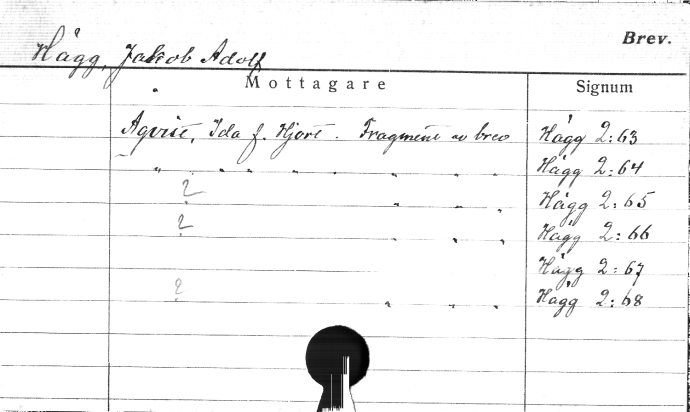 Brev.
Hägg, Jakob Adolf
Mottagare Signum
Agvist, Ida f. Hjort. Fragment av brev Hägg 2:63
" " " " " " " " Hägg 2:64
? " " " Hägg 2:65
? " " " Hägg 2:66
Hägg 2:67
? " " " Hägg 2:68